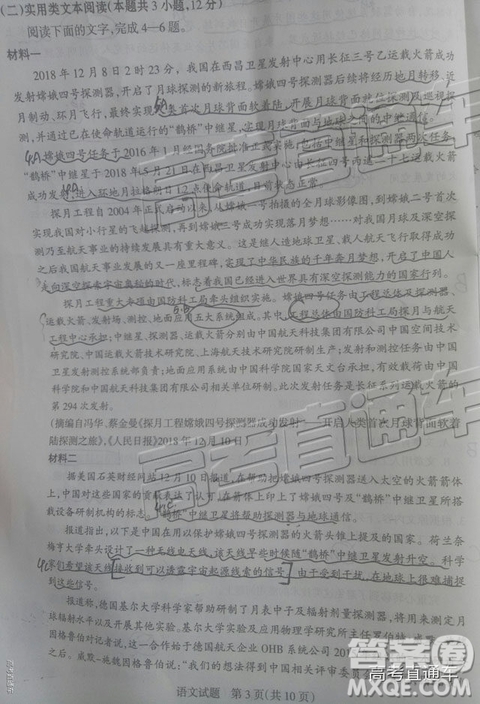 (二)实用类文本阅读(本题共3小题,12分)
阅读下面的文字,完成4—6题。
材料一
2018年12月8日2时23分,我国在西昌卫星发射中心用长征三号乙运载火箭成功
发射嫦娥四号探测器,开启了月球探测的新旅程。嫦娥四号探测器后续将经历地月转移、近
月制动、环月飞行,最终实现人类首次月球背面软着陆,开展月球背面就位探测及巡视探
测,并通过已在使命轨道运行的“鹊桥”中继星,实现月球背面与地球之间的中继通信。
嫦娥四号任务于2016年1月经国务院批准正式实施,包括中继星和探测器两次任务。
“鹊桥”中继星于2018年5月21日在西昌卫星发射中心由长征四号丙遥二十七运载火箭
成功发射,进入环地月拉格朗日L2点使命轨道,目前状态正常。
探月工程自2004年正式启动以来,从嫦娥一号拍摄的全月球影像图,到嫦娥二号首次
实现我国对小行星的飞越探测,再到嫦娥三号成功实现落月梦想……对我国月球及深空探
测乃至航天事业的持续发展具有重大意义。这是继人造地球卫星、载人航天飞行取得成功
之后我国航天事业发展的又一座里程碑,实现了中华民族的千年奔月梦想,开启了中国人
走向深空探索宇宙奥秘的时代,标志着我国已经进入世界具有深空探测能力的国家行列。
探月工程重大专项由国防科工局牵头组织实施。嫦娥四号任务由工程总体及探测器、
运载火箭、发射场、测控、地面应用五大系统组成。其中,工程总体由国防科工局探月与航天
工程中心承担;中继星、探测器、运载火箭分别由中国航天科技集团有限公司中国空间技术
研究院、中国运载火箭技术研究院、上海航天技术研究院研制生产;发射和测控任务由中国
卫星发射测控系统部负责;地面应用系统由中国科学院国家天文台承担,有效载荷由中国
科学院和中国航天科技集团有限公司相关单位研制。此次发射任务是长征系列运载火箭的
第294次发射。
(摘编自冯华、蔡金曼《探月工程嫦娥四号探测器成功发射 开启人类首次月球背面软着
陆探测之旅》,《人民日报》2018年12月10日)
材料二
据美国石英财经网站12月10日报道,在帮助把嫦娥四号探测器送入太空的火箭箭体
上,中国对这些国家的贡献表达了认可。在箭体上印上了嫦娥四号及“鹊桥”中继卫星所搭
载设备研制机构的标志。“鹊桥”中继卫星将帮助探测器与地球通信。
报道指出,以下是中国在用以保护嫦娥四号探测器的火箭头锥上提及的国家。荷兰奈
梅亨大学牵头设计了一种无线电天线,该天线早些时候随“鹊桥”中继卫星发射升空。科学
家们希望该天线接收到可以透露宇宙起源线索的信号,由于受到干扰,在地球上很难捕捉
到这些信号。
报道称,德国基尔大学科学家帮助研制了月表中子及辐射剂量探测器,将用来测定月
球辐射水平以及开展其他实验。基尔大学实验及应用物理学研究所主任罗伯特·威默-施魏
因格鲁伯对记者说,这一合作始于德国航天企业OHB系统公司201
之后。威默-施魏因格鲁伯说:“我们的想法得到中国相关评审委员
语文试题 第3页(共10页)
高考直通车
高考直通车
答案圈
MXQE.COM